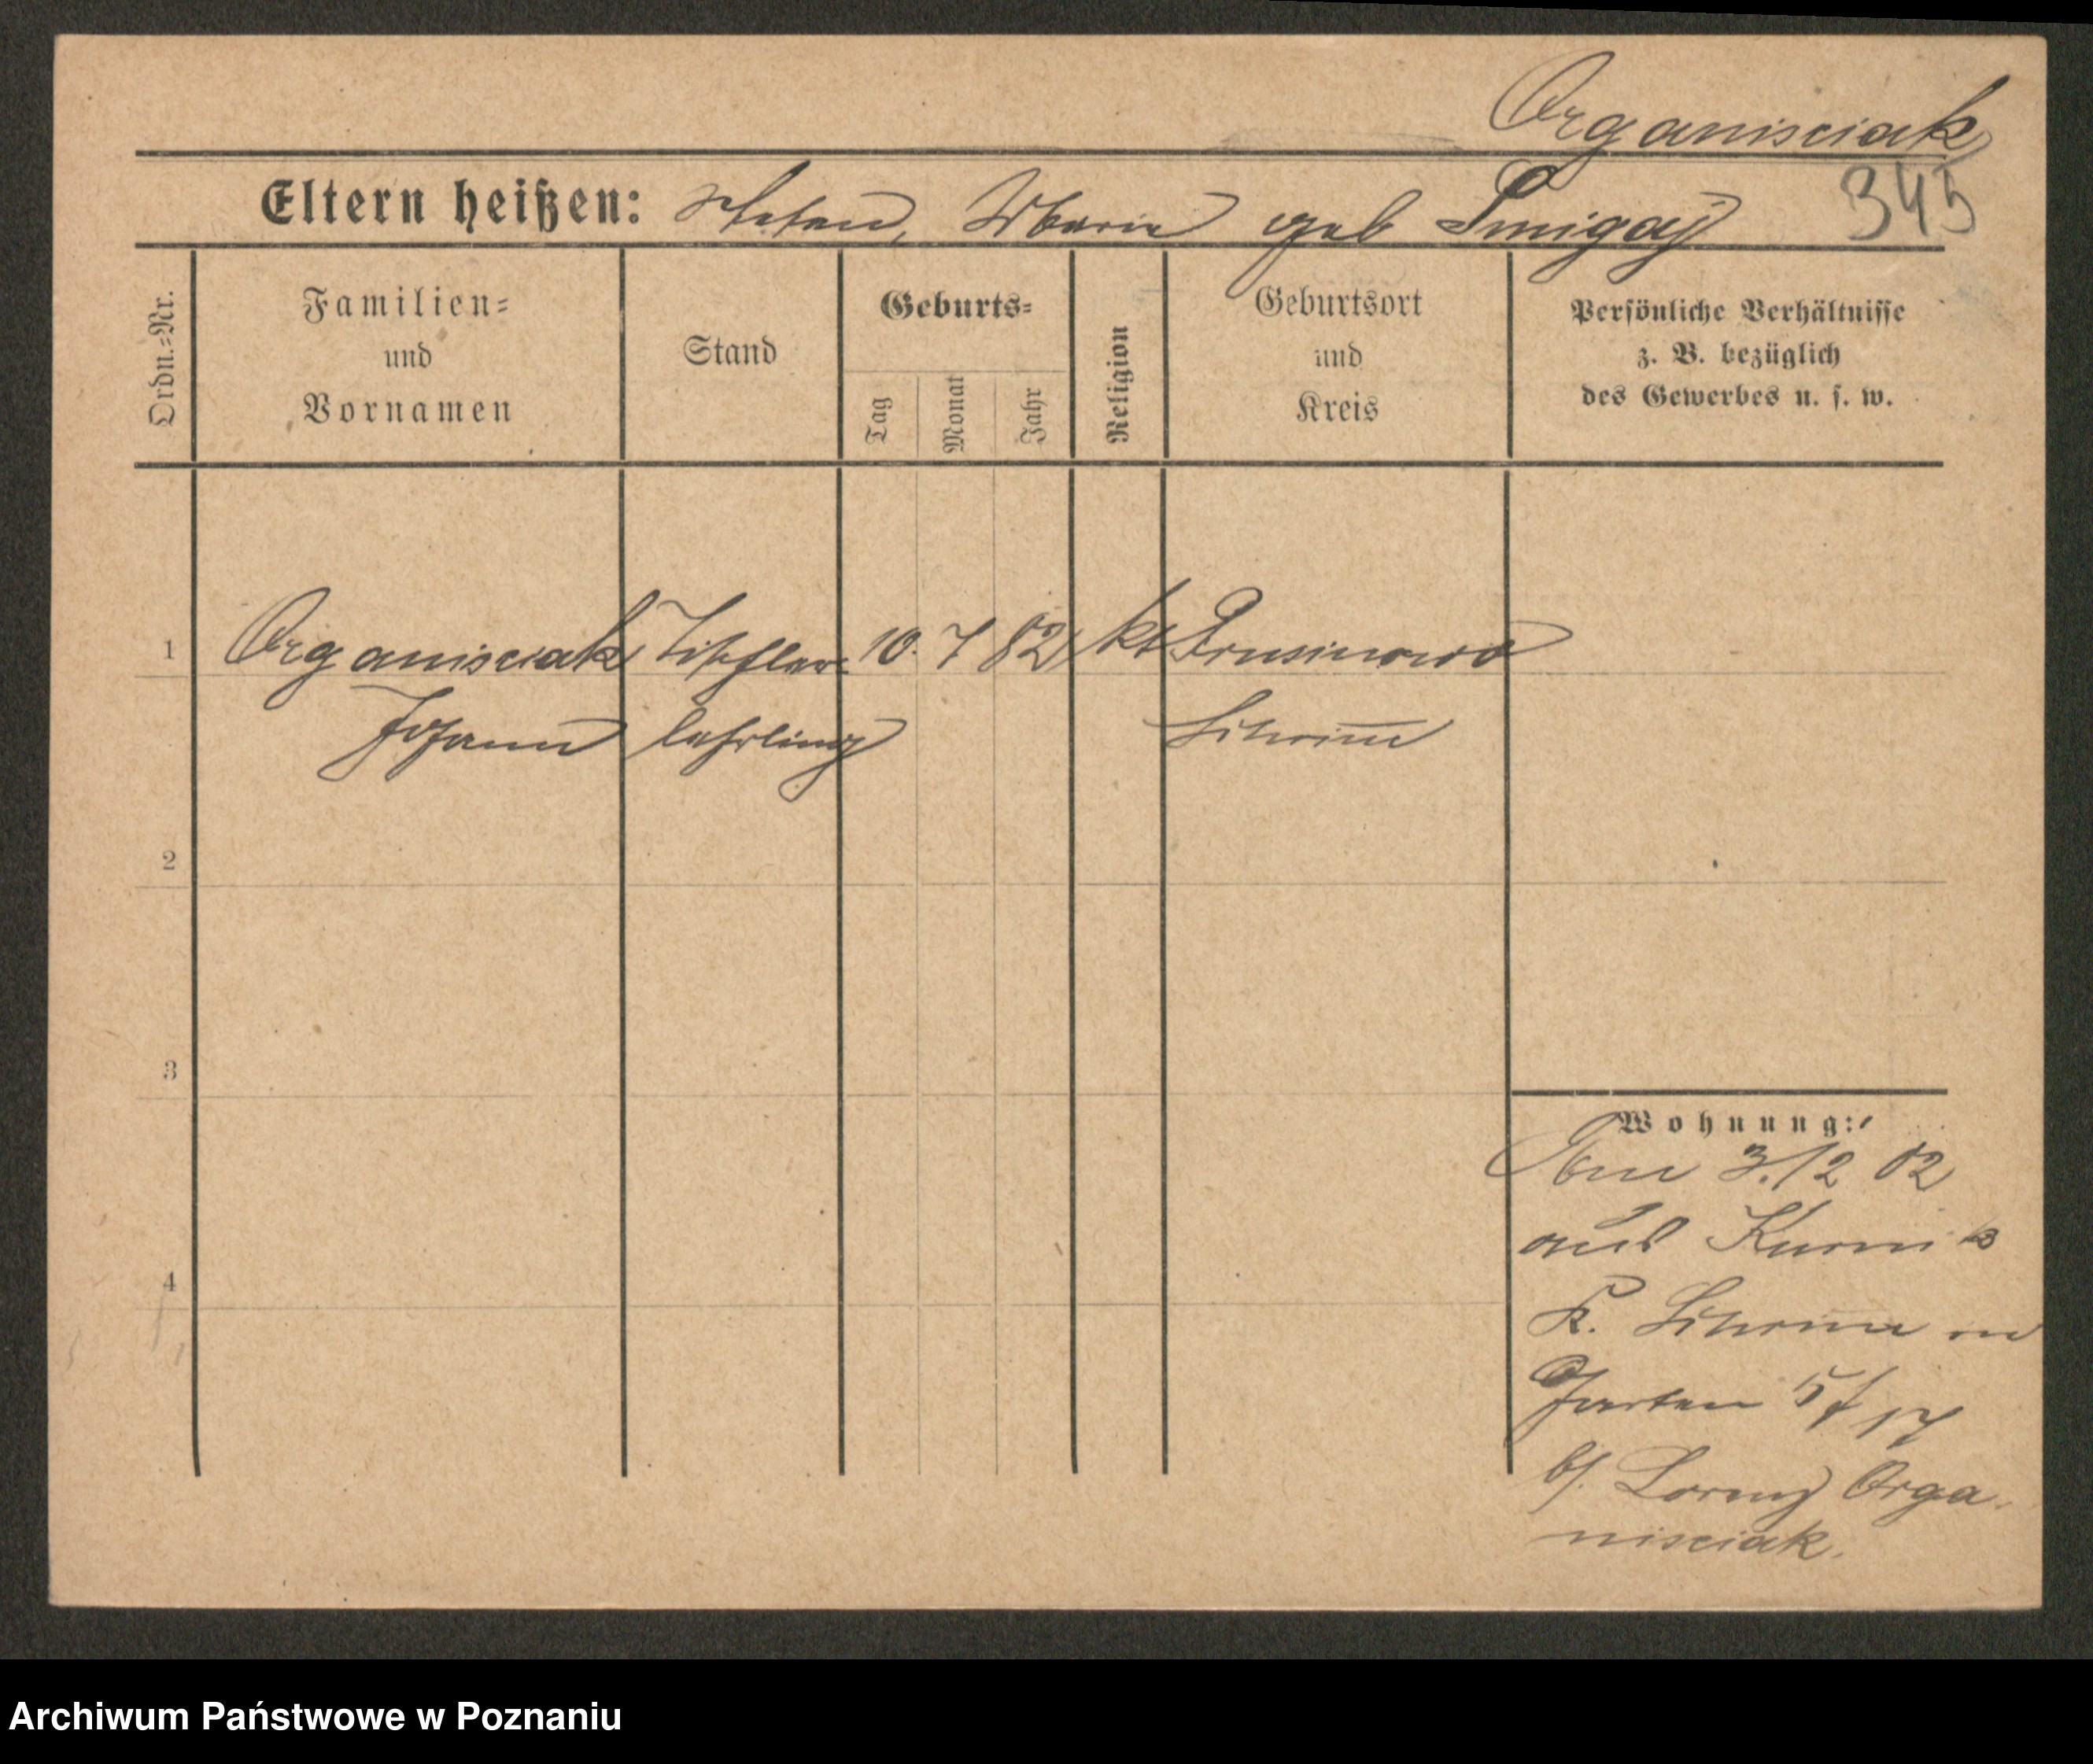 Organisciak
Eltern heißen: Stefan, Maria geb Smigaj
345
Ordn.-Nr.
Familien-
und
Vornamen
Stand
Geburts-
Tag
Monat
Jahr
Religion
Geburtsort
und
Kreis
Persönliche Verhältnisse
z. B. bezüglich
des Gewerbes u. s. w.
1 Organisciak Tischler- 10. 7 82 kt Prusinowo
Johann lehrling Schrimm
2
3
4
Wohnung:
3./2 02
aus Kurnik
K. Schrimm
Garten
b/. Lorenz Orga-
nisciak.
Archiwum Państwowe w Poznaniu